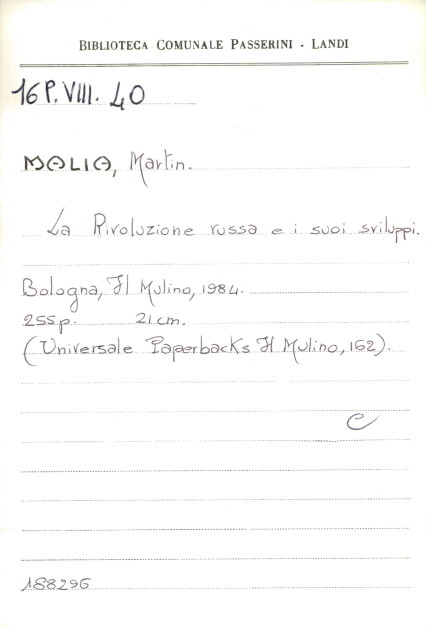 BIBLIOTECA COMUNALE PASSERINI - LANDI
16 P. VIII. 40
MALIA, Martin.
La Rivoluzione russa e i suoi sviluppi.
Bologna, Il Mulino, 1984.
255 p. 21 cm.
(Universale Paperbacks Il Mulino, 162).
e
188296